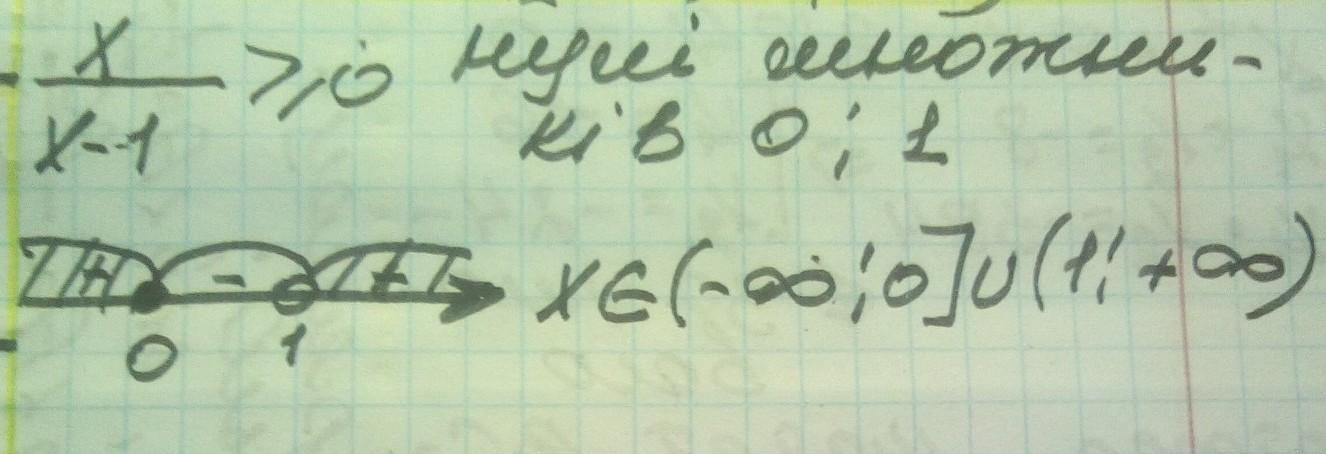 x/(x-1) ⩾ 0 нулі множни-
ків 0; 1
+ - +
0 1
x∈(-∞;0]∪(1;+∞)